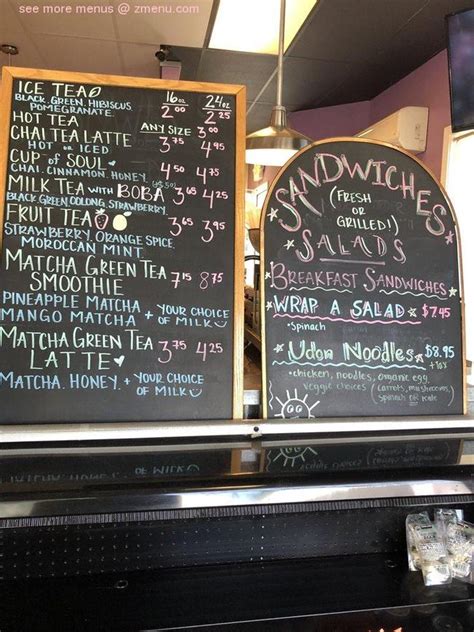 see more menus @ zmenu.com
ICE TEA 16oz 24oz
BLACK. GREEN. HIBISCUS 2.00 2.25
POMEGRANATE
HOT TEA ANY SIZE 3.00
CHAI TEA LATTE 3.75 4.95
HOT OR ICED
CUP OF SOUL 4.50 4.75
CHAI. CINNAMON. HONEY.
MILK TEA WITH BOBA 3.65 4.25
BLACK GREEN OOLONG. STRAWBERRY
FRUIT TEA 3.65 3.95
STRAWBERRY. ORANGE SPICE.
MOROCCAN MINT.
MATCHA GREEN TEA 7.15 8.75
SMOOTHIE
PINEAPPLE MATCHA + YOUR CHOICE
MANGO MATCHA OF MILK
MATCHA GREEN TEA 3.75 4.25
LATTE
MATCHA. HONEY. + YOUR CHOICE
OF MILK
SANDWICHES
(FRESH
OR
GRILLED!)
SALADS
BREAKFAST SANDWICHES
WRAP A SALAD $7.45
•spinach
Udon Noodles $8.95
•chicken, noodles, organic egg,
veggie choices (carrots, mushrooms,
spinach OR kale)